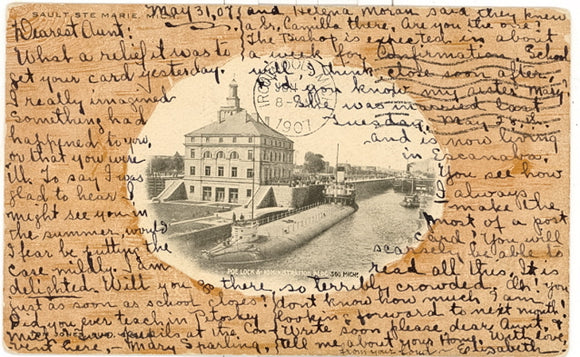 SAULT STE. MARIE, M
May 31, 07.
Dearest Aunt:
What a relief it was to
get your card yesterday.
I really imagined
something had
happened to you,
or that you were
ill. To say I was
glad to hear I
might see you in
the summer, would
I fear be putting the
case mildly. I am
delighted. Will you go there,
just as soon as school closes?
Did you ever teach in Petoskey
pupils at the Con
here, - Mary Sparling,
and Helena Moran said they knew
a Camilla there. Are you the
The Bishop is expected in about
a week for Confirmation. School
will, I think, close soon after.
you know my sister May
Belle was married last
Tuesday, May 28,
and is now living
in Escanaba.
You see how
I always
make the
most of a post
card! You will
scarcely be able
to read all this. It is
so terribly crowded. Oh! you
don't know how much I am
looking forward to next month
Write soon, please dear Aunt, &
tell me about your Pony. With love
from your loving Elizabeth
8-
1901
POE LOCK & ADMINISTRATION BLDG. SOO MICH.